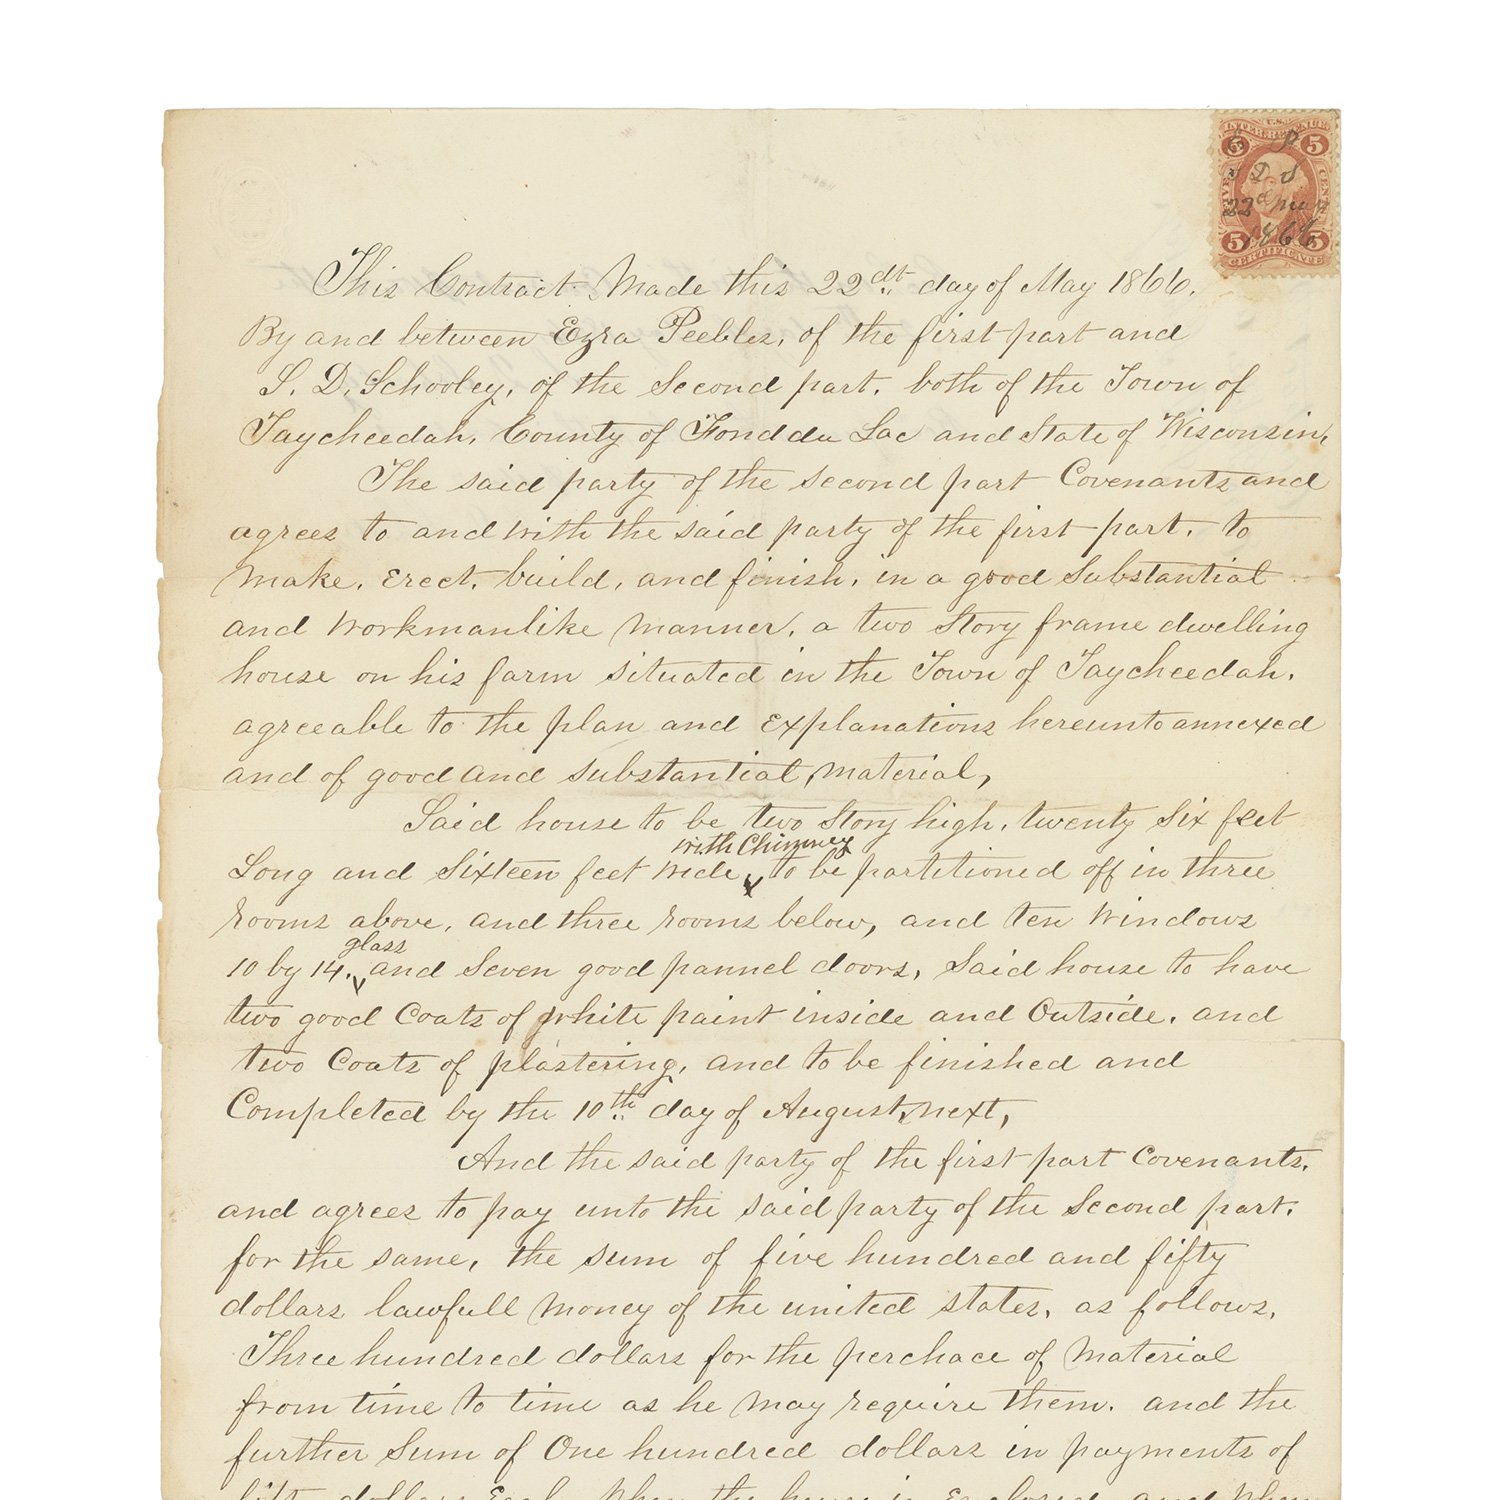 U.S.
INTER. REVENUE
5 5
E P
S D S
22d May
1866
FIVE CENTS
5 5
CERTIFICATE
This Contract Made this 22dt day of May 1866.
By and between Ezra Peebles, of the first part and
S. D. Schooley, of the Second part. both of the Town of
Taycheedah, County of Fond du Lac and State of Wisconsin,
The said party of the second part Covenants and
agrees to and with the said party of the first part, to
Make, Erect, build, and finish, in a good Substantial
and Workmanlike Manner, a two Story frame dwelling
house on his farm situated in the Town of Taycheedah.
agreeable to the plan and Explanations hereunto annexed
and of good and substantial, Material,
Said house to be two Story high, twenty Six feet
with Chimney
Long and Sixteen feet wide, to be partitioned off in three
rooms above, and three rooms below, and ten Windows
glass
10 by 14. and Seven good pannel doors, Said house to have
two good Coats of white paint inside and Outside, and
two Coats of plastering, and to be finished and
Completed by the 10th day of August, next,
And the said party of the first part Covenants,
and agrees to pay unto the said party of the Second part.
for the same, the sum of five hundred and fifty
dollars lawfull Money of the united states, as follows,
Three hundred dollars for the perchace of Material
from time to time as he May require them. and the
further Sum of One hundred dollars in payments of
dollars Each When the house is Enclosed and When